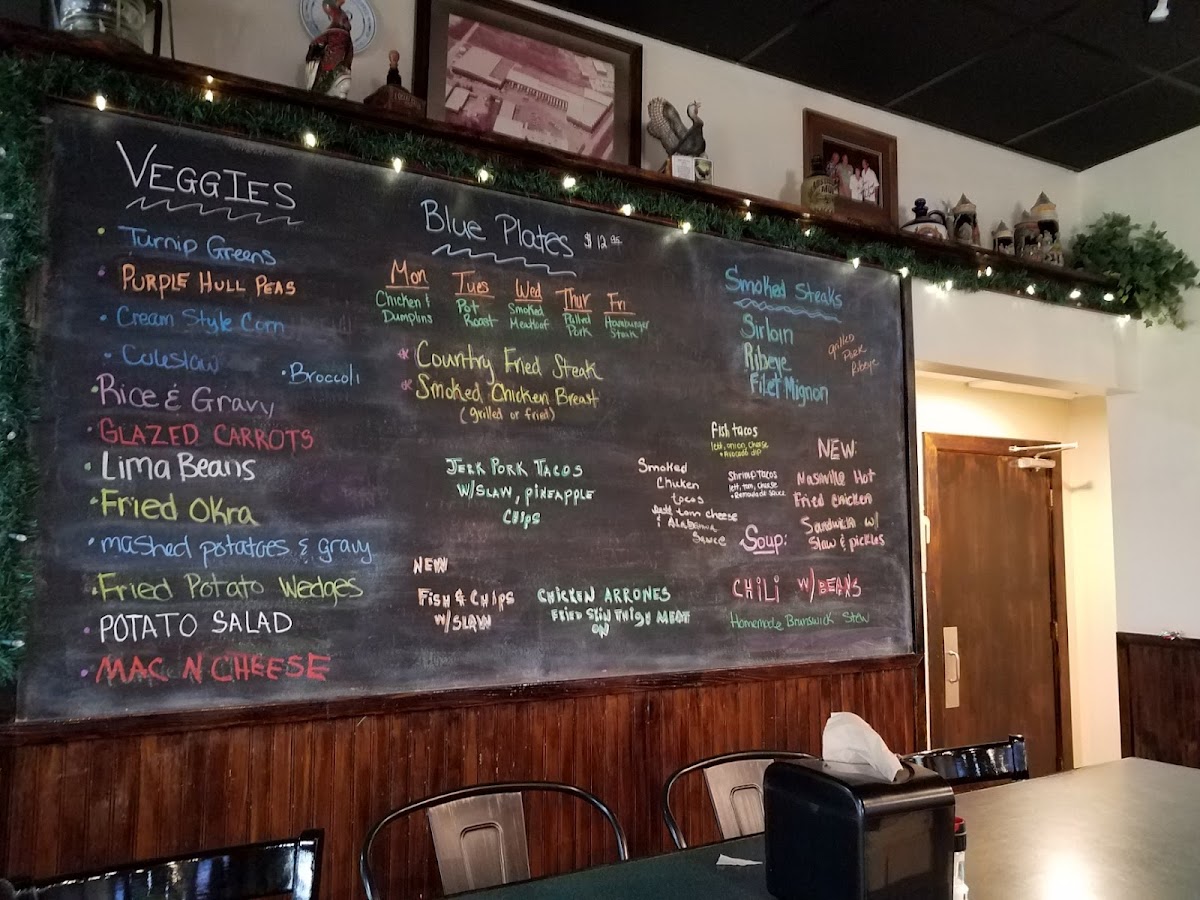 VEGGIES
• Turnip Greens
• PURPLE HULL PEAS
• Cream Style Corn
• Coleslaw
• Broccoli
• Rice & Gravy
• GLAZED CARROTS
• Lima Beans
• Fried Okra
• mashed potatoes & gravy
• Fried Potato Wedges
• POTATO SALAD
• MAC N CHEESE
Blue Plates $12.95
Mon
Chicken &
Dumplins
Tues
Pot
Roast
Wed
Smoked
Meatloaf
Thur
Pulled
Pork
Fri
Hamburger
Steak
* Country Fried Steak
* Smoked Chicken Breast
(grilled or fried)
JERK PORK TACOS
W/SLAW, PINEAPPLE
CHIPS
NEW
FISH & CHIPS
W/SLAW
CHICKEN ARRONES
FRIED SKIN THIGH MEAT
ON
Smoked
Chicken
tacos
lett tom cheese
& Alabama
Sauce
Smoked Steaks
Sirloin
Ribeye
Filet Mignon
grilled
Pork
Ribeye
fish tacos
lett, onion, cheese
• Avocado dip
Shrimp Tacos
lett, tom, cheese
• Remoulade sauce
NEW:
Nashville Hot
Fried chicken
Sandwich w/
Slaw & pickles
Soup:
CHILI W/BEANS
Homemade Brunswick Stew